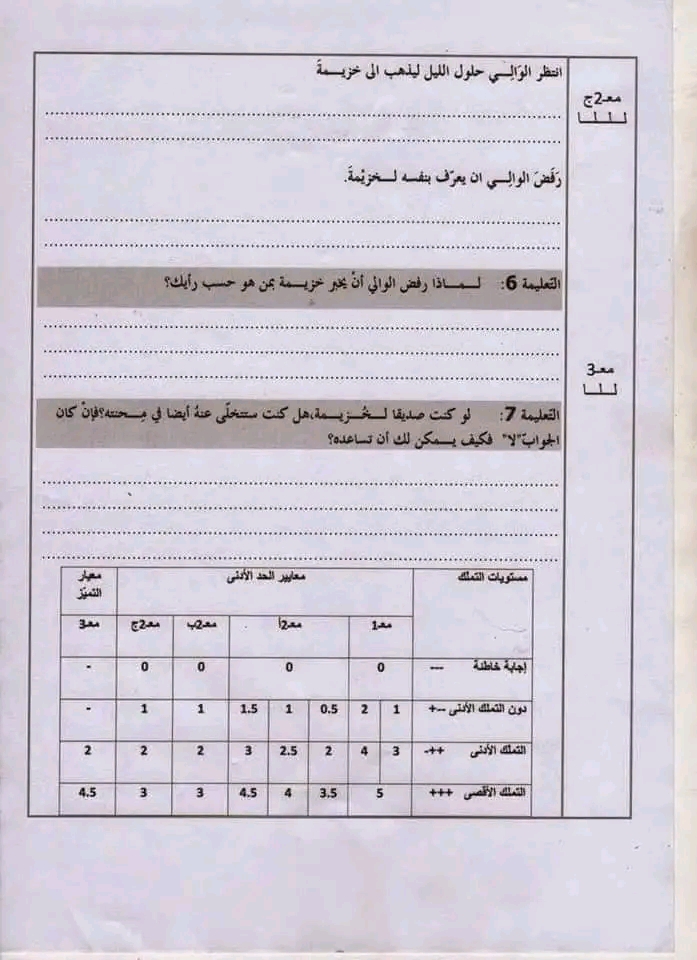 معـ2ج
انتظر الوَالِــي حلول الليل ليذهب الى خزيــمةَ
رَفَضَ الوالِــي ان يعرّف بنفسه لـخزيْمةَ.
التعليمة 6: لــمــاذا رفض الوالي أنْ يخبر خزيــمة بمن هو حسب رأيك؟
معـ3
التعليمة 7: لو كنت صديقا لـخُــزيــمة،هل كنت ستتخلّى عنهُ أيضا في مِـحنته؟فإنْ كان
الجوابّ"لا" فكيف يـمكن لك أن تساعده؟
مستويات التملك معايير الحد الأدنى معيار التميّز
معـ1 معـ2أ معـ2ب معـ2ج معـ3
إجابة خاطئة --- 0 0 0 0 -
دون التملك الأدنى --+ 1 2 0.5 1 1.5 1 1 -
التملك الأدنى -++ 3 4 2 2.5 3 2 2 2
التملك الأقصى +++ 5 3.5 4 4.5 3 3 4.5